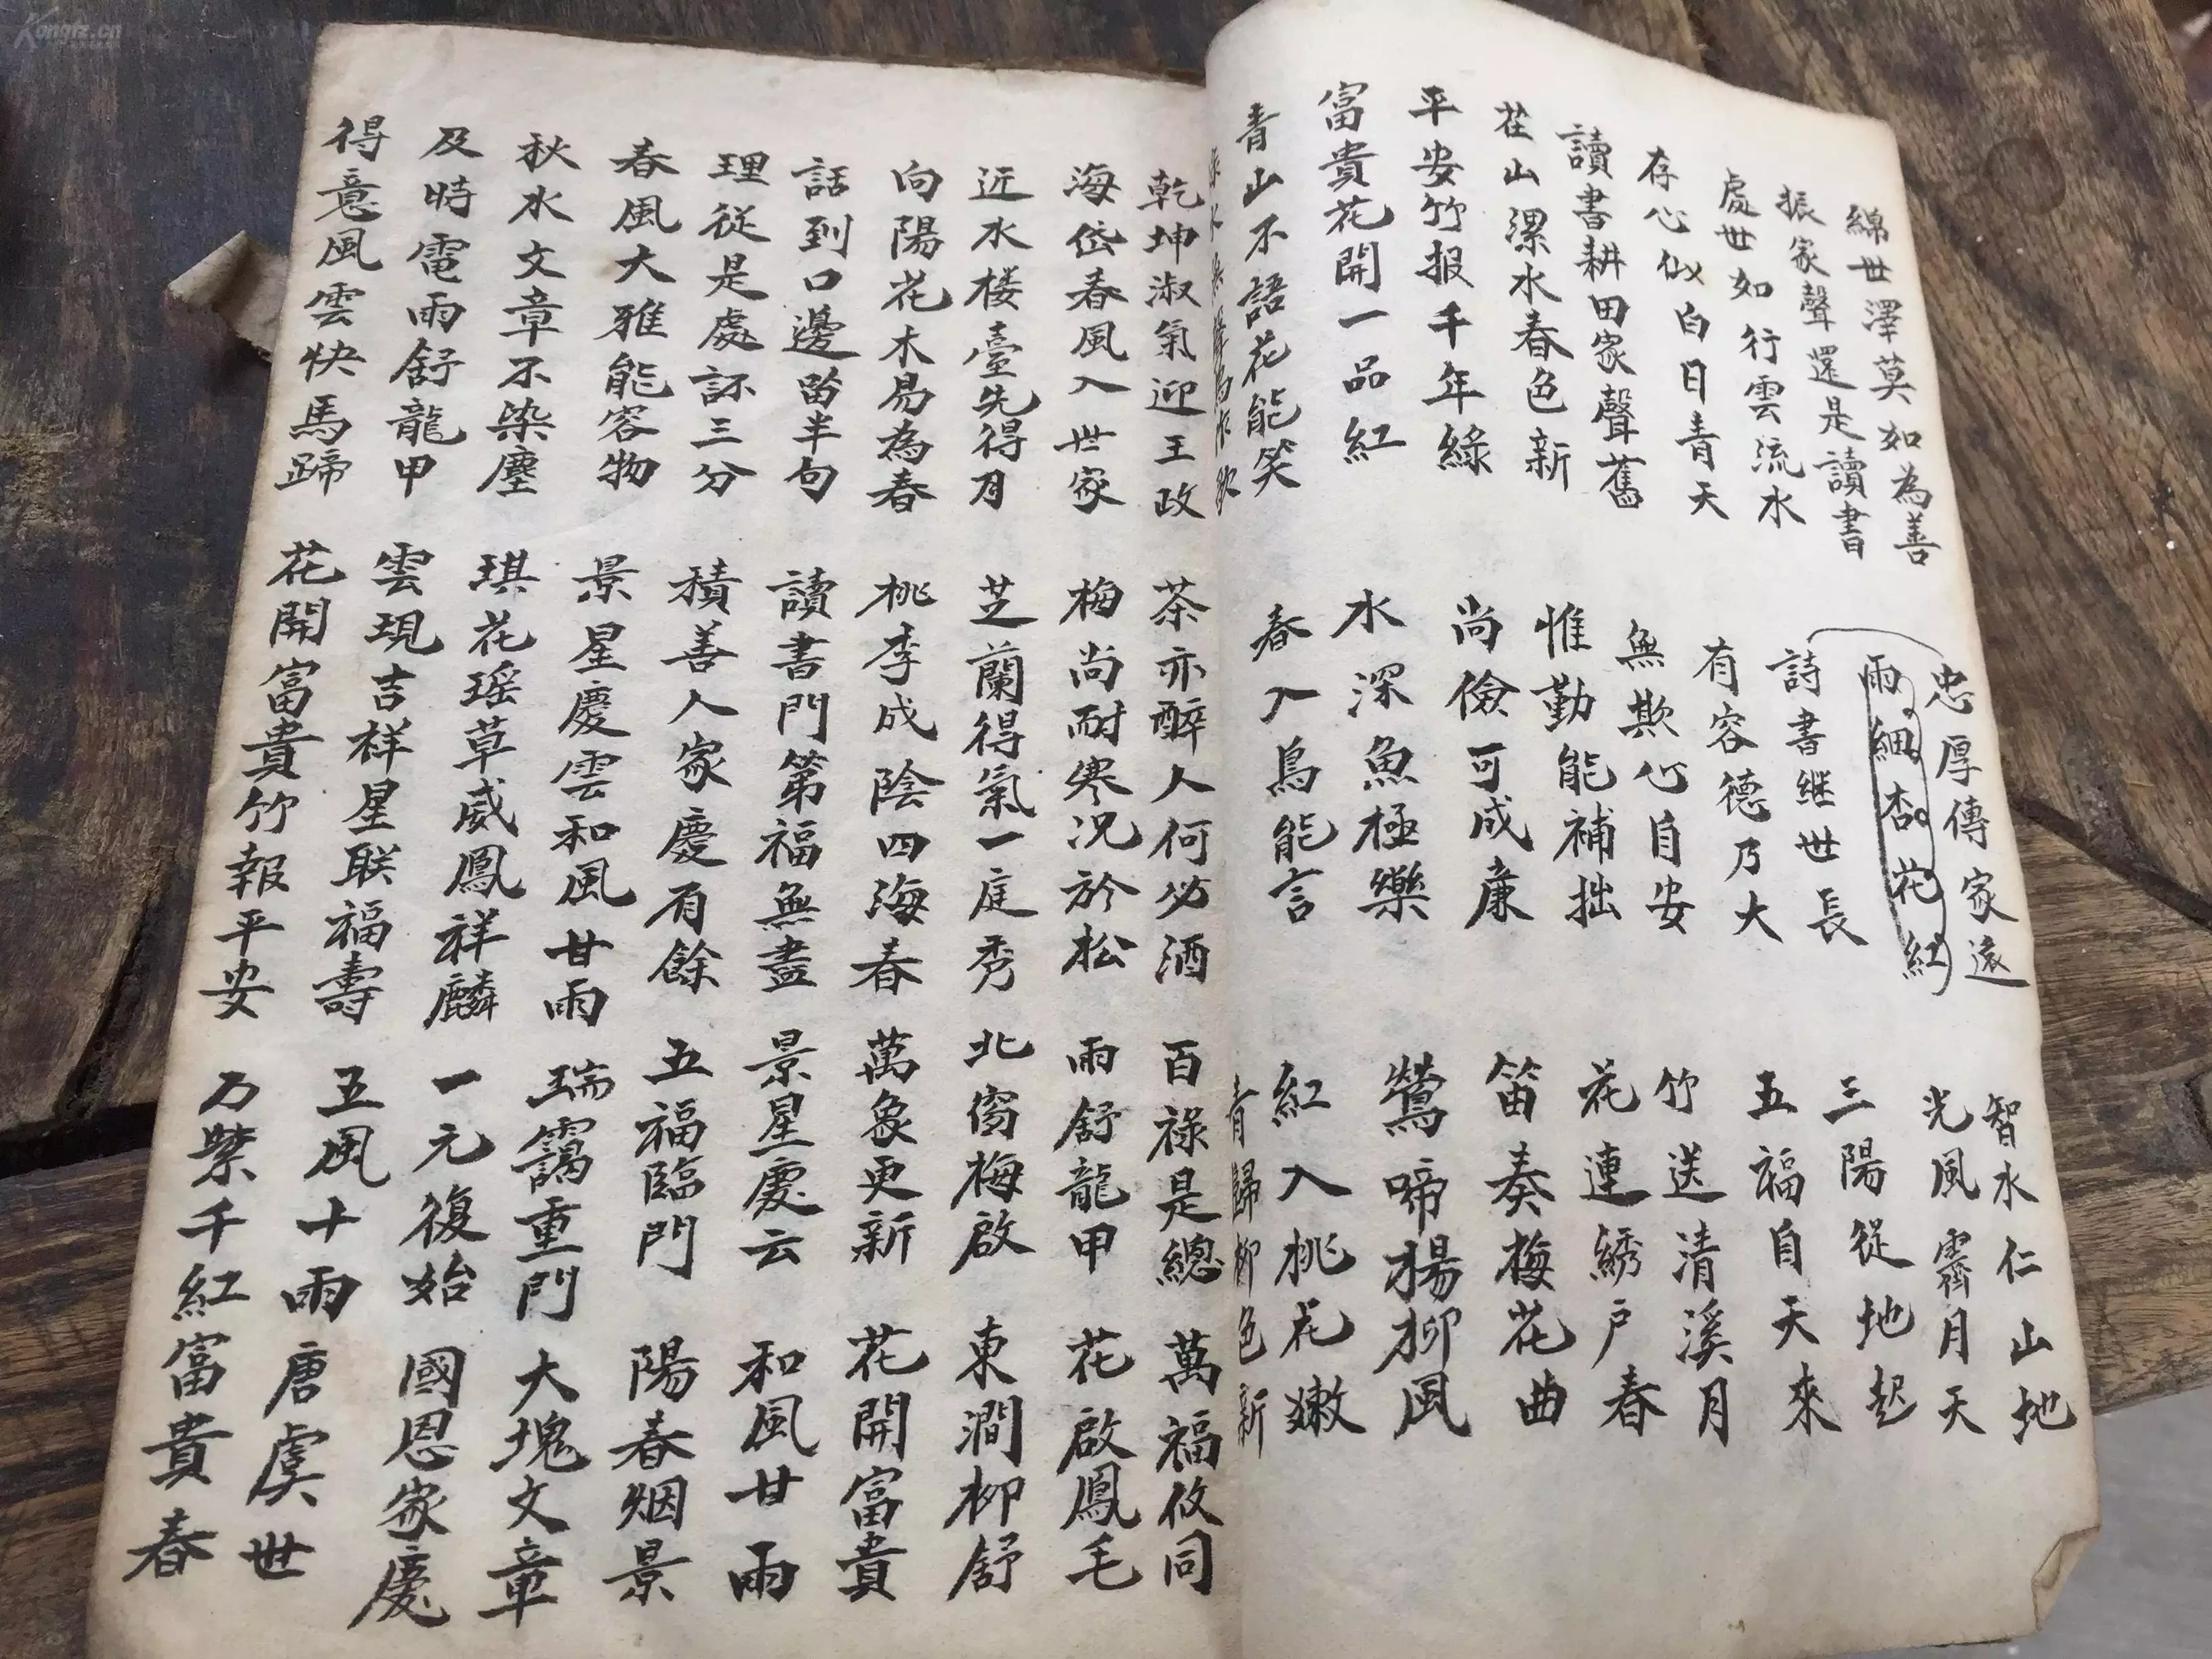 綿世澤莫如為善
振家聲還是讀書
處世如行雲流水
存心似白日青天
讀書耕田家聲舊
在山漯水春色新
平安竹报千年綠
富貴花開一品紅
青山不語花能笑
忠厚傳家遠
雨細杏花紅
詩書継世長
有容德乃大
無欺心自安
惟勤能補拙
尚儉可成廉
水深魚極樂
春入鳥能言
智水仁山地
光風霽月天
三陽從地起
五福自天來
竹送清溪月
花連綉户春
笛奏梅花曲
鶯啼楊柳風
紅入桃花嫩
青歸柳色新
乾坤淑氣迎王政
海岱春風入世家
近水楼臺先得月
向陽花木易為春
話到口邊留半句
理從是處訴三分
春風大雅能容物
秋水文章不染塵
及時電雨舒龍甲
得意風雲快馬蹄
茶亦醉人何必酒
梅尚耐寒况於松
芝蘭得氣一庭秀
桃李成陰四海春
讀書門第福無盡
積善人家慶有餘
景星慶雲和風甘雨
琪花瑶草威鳳祥麟
雲現吉祥星联福壽
花開富貴竹報平安
百祿是總
雨舒龍甲
北窗梅啟
萬象更新
景星慶云
五福臨門
瑞靄重門
一元復始
五風十雨
万紫千紅富貴春
萬福攸同
花啟鳳毛
東澗柳舒
花開富貴
和風甘雨
陽春烟景
大塊文章
國恩家慶
唐虞世
Kongfz.cn